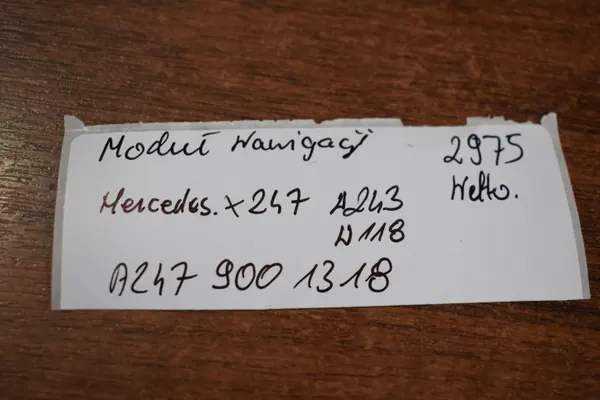 Moduł Nawigacji
2975
Netto.
Mercedes. X247 A243
W118
A247 900 13 18